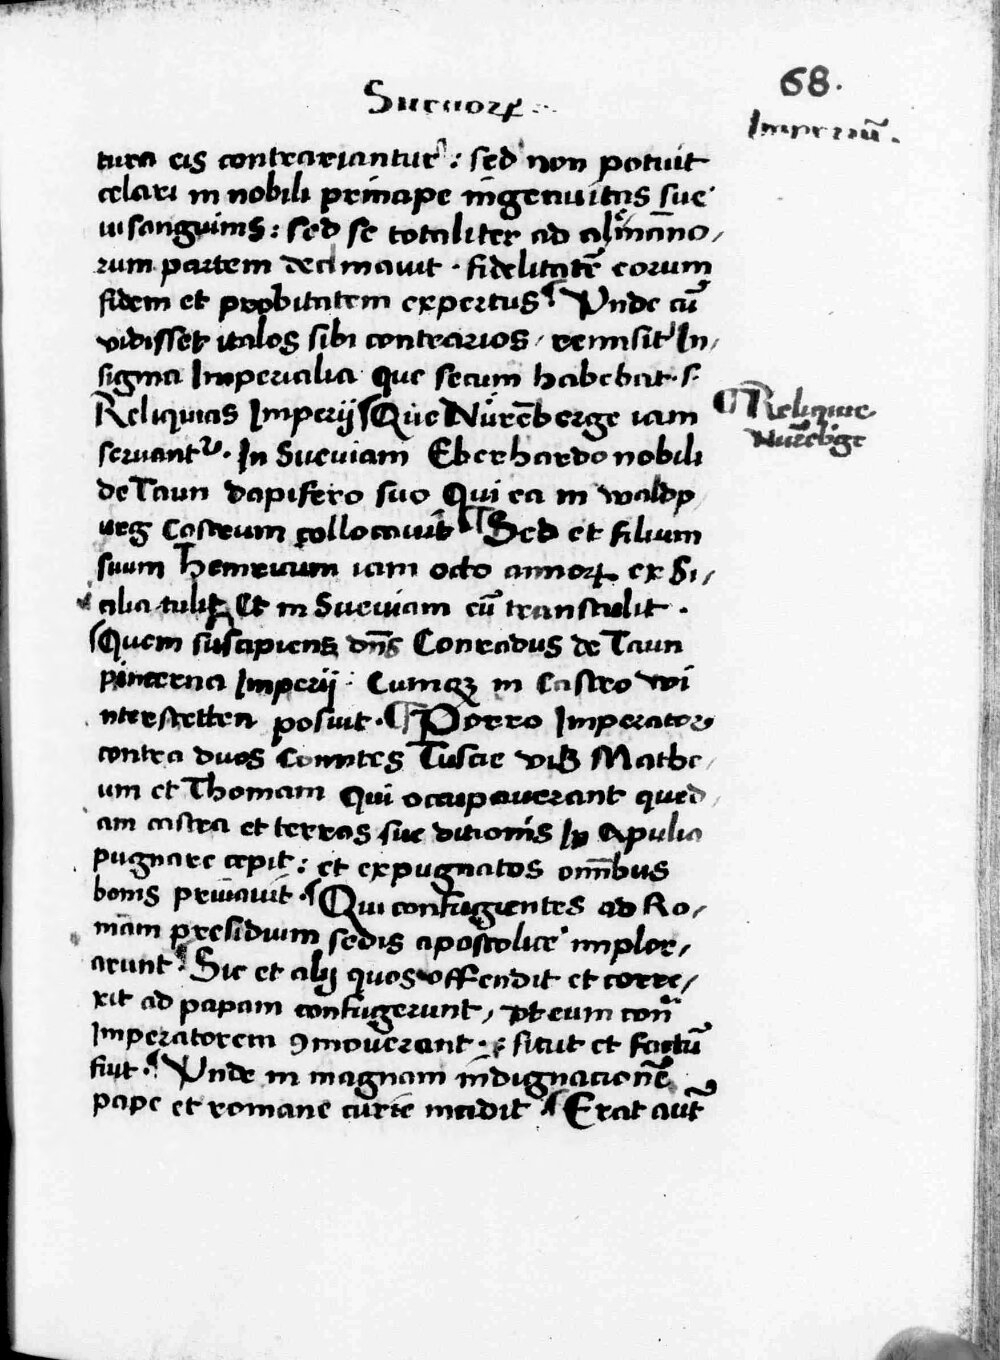 68.
Sueuorꝝ
Imperiū.
tura eis contrariantur : sed non potuit
celari in nobili principe ingenuitas sue
ui sanguinis : sed se totaliter ad almāno/
rum partem declinauit . fidelitatē eorum
fidem et probitatem expertus Vnde cū
vidisset italos sibi contrarios / remisit In/
signia Imperialia que secum habebat . s.
Reliquias Imperij Que Nůrēberge iam
seruantᷣ . In Sueuiam Eberhardo nobili
de Taun dapifero suo Qui ea in waldp
urg Castrum collocauit ¶ Sed et filium
suum Heinricum iam octo annorꝝ ex Si/
cilia tulit Et in Sueuiam cū transtulit .
Quem suscipiens dn̄s Conradus de Taun
pincerna Imperij : Eumqꝫ in Castro wi
nterstetten posuit . ¶ Porro Imperator
contra duos Comites Tuscie vꝫ Mathe/
um et Thomam Qui occupauerant qued/
am castra et terras sue ditionis In Apulia
pugnare cepit : et expugnatos omībus
bonis priuauit . Qui confugientes ad Ro/
mam presidium sedis apostolice implor/
arunt Sic et alij quos offendit et corre/
xit ad papam confugerunt / vt eum con
Imperatorem ꝯmouerant . sicut et factū
fuit . Vnde in magnam indignacionē
pape et romane curie incidit Erat aut̄
¶ Reliquie
Nurēb̄ge